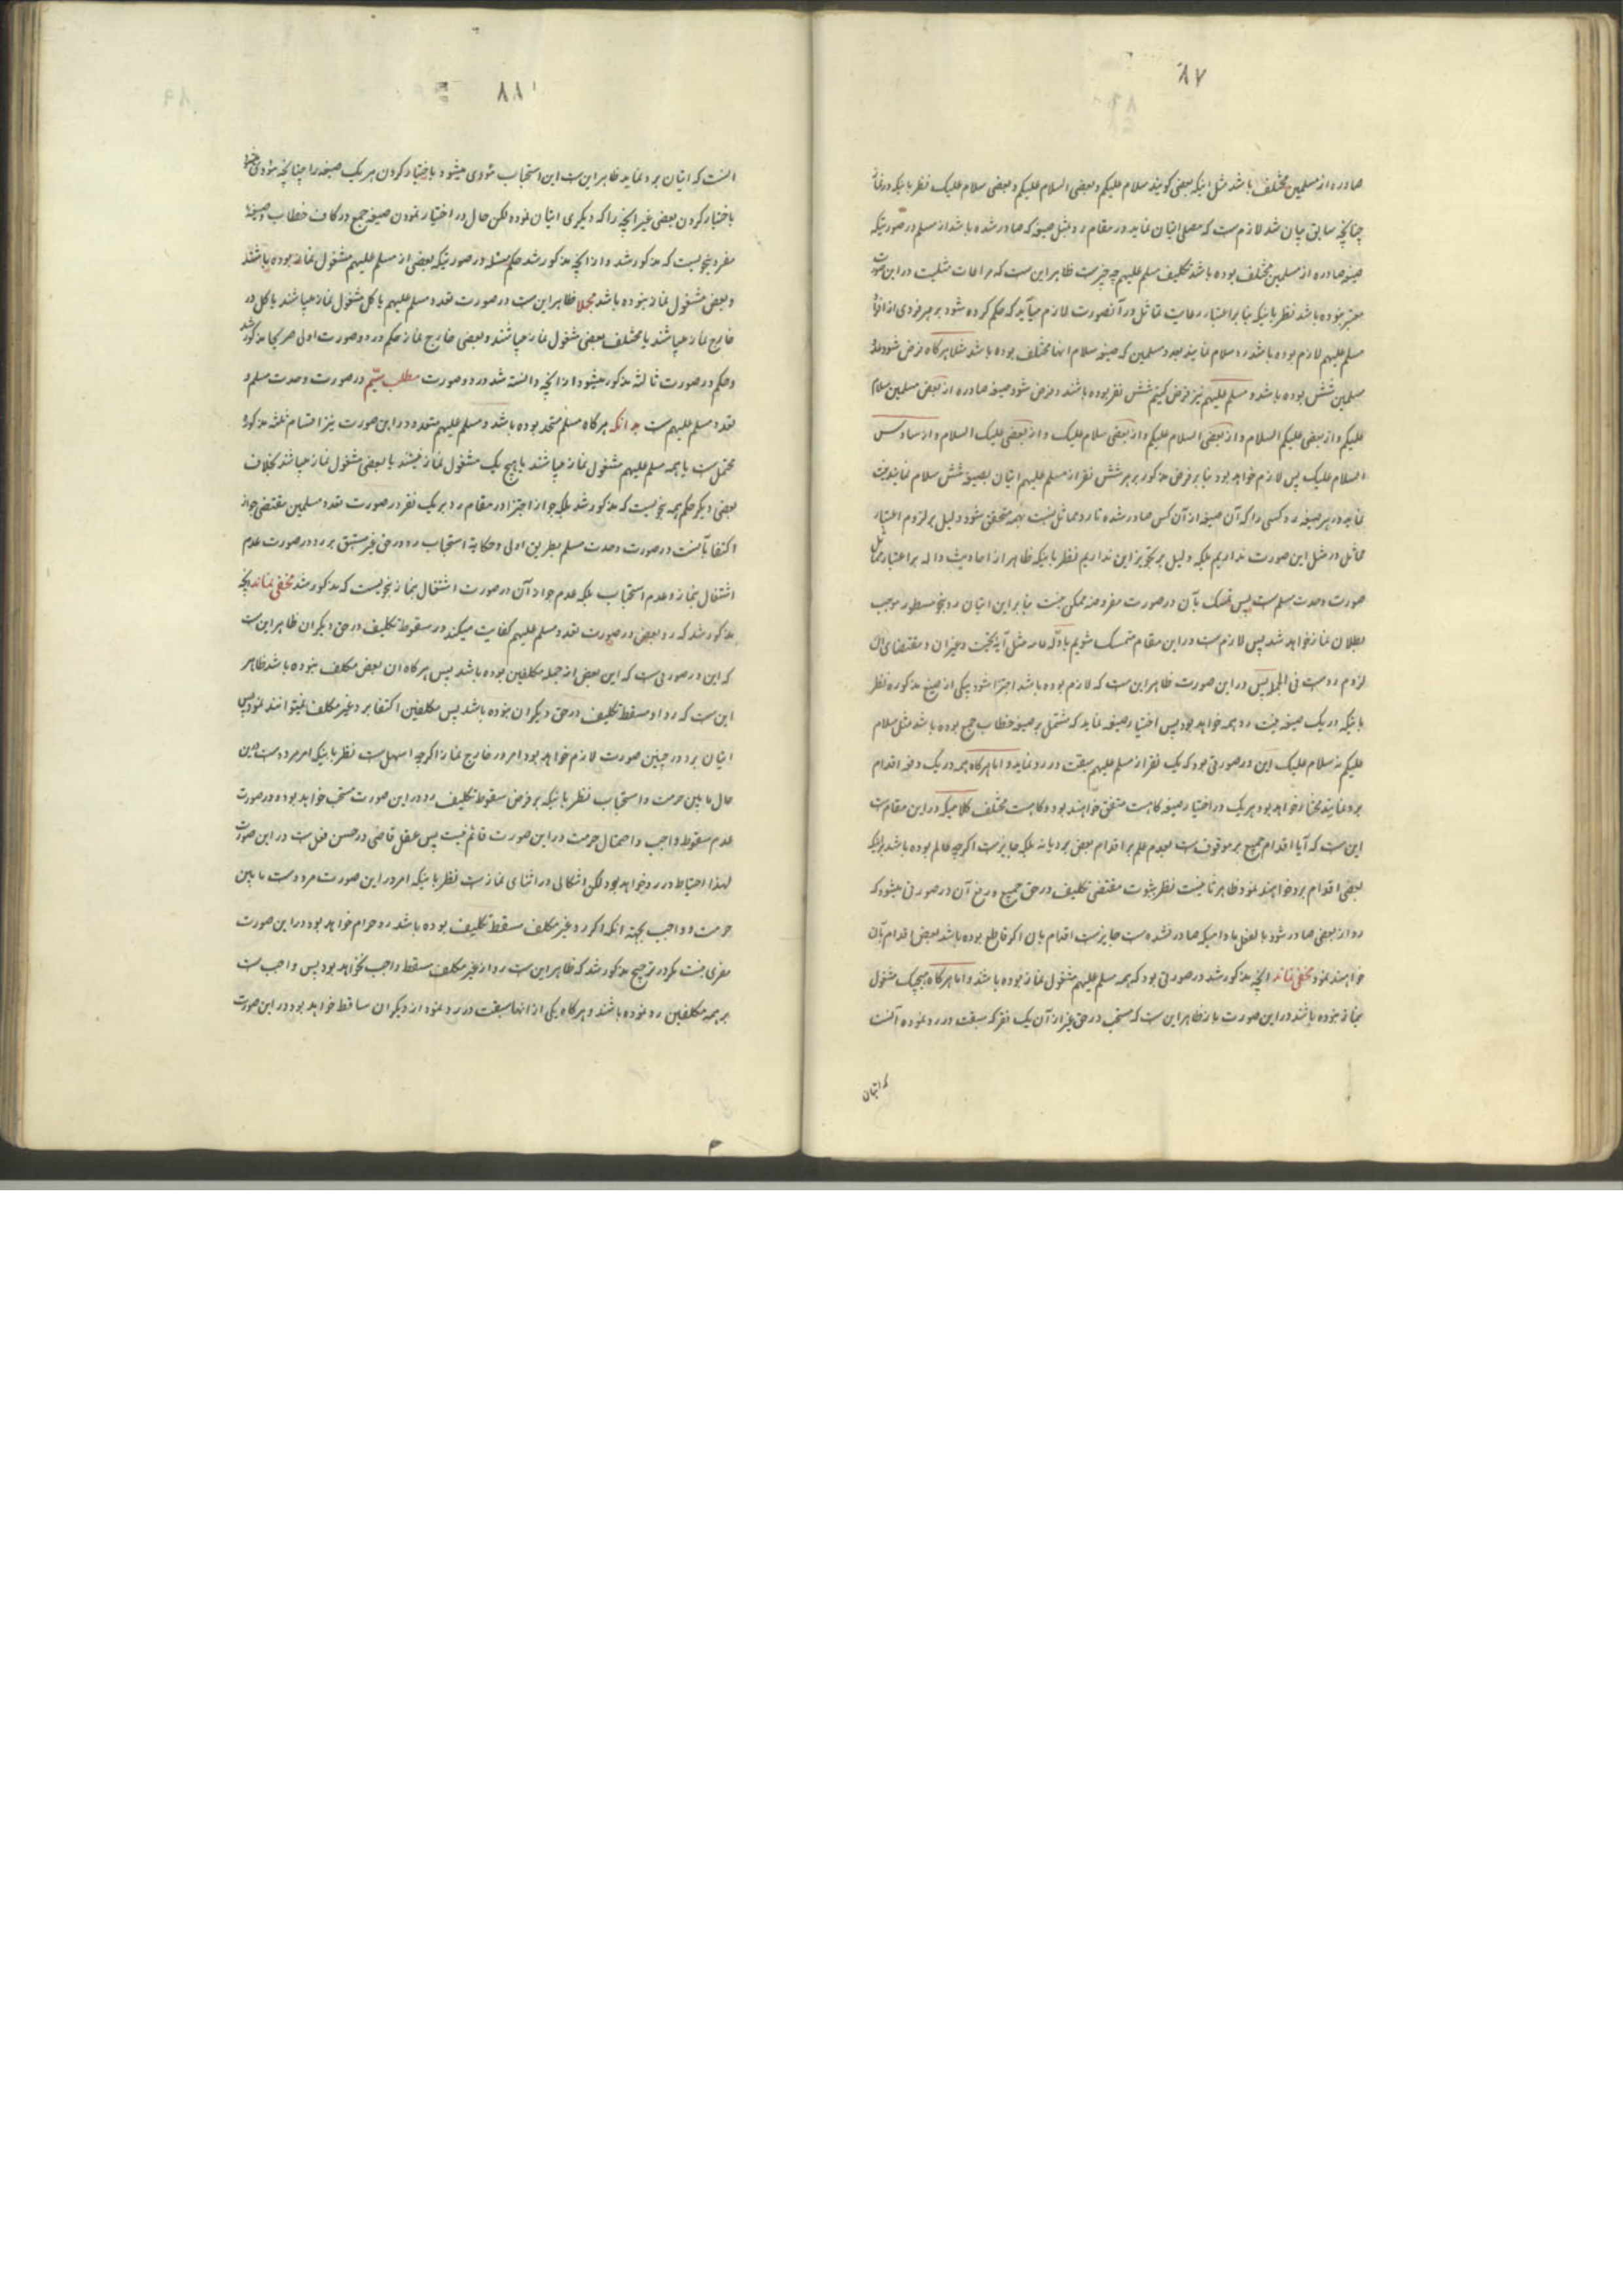 ۸۷
صادره از مسلمین مختلف باشد مثل اینکه بعضی کویند سلام علیکم و بعضی السلام علیکم و بعضی سلام علیک نظر باینکه
چنانچه سابق بیان شد لازم ست که مصلی اتیان نماید در مقام رد بمثل صیغه که صادر شده باشد از مسلم در صورتیکه
صیغه صادره از مسلمین مختلف بوده باشد تکلیف مسلم علیهم چه چیز ست ظاهر این ست که مراعات مثلیت در این صورت
معتبر نبوده باشد نظر باینکه بنابر اعتبار رعایت تماثل در آنصورت لازم میآید که حکم کرده شود بر هر فردی از افراد
مسلم علیهم لازم بوده باشد رد سلام نمایند بعدد مسلمین که صیغه سلام انها مختلف بوده باشد مثلا هرکاه فرض شود عدد
مسلمین شش بوده باشد و مسلم علیهم نیز فرض کنیم شش نفر بوده باشند و فرض شود صیغه صادره از بعض مسلمین سلام
علیکم و از بعضی علیکم السلام و از بعضی السلام علیکم و از بعضی سلام علیک و از بعضی علیک السلام و از سادس
السلام علیک پس لازم خواهد بود بنابر فرض مذکور بر هر شش نفر از مسلم علیهم اتیان بصیغه شش سلام نمایند
نماید در هر صیغه رد کسی را که آن صیغه از آن کس صادر شده تا رد مماثل نسبت بهمه متحقق شود و دلیل بر لزوم اعتبار
مماثل در مثل این صورت نداریم بلکه دلیل بر تجویز این نداریم نظر باینکه ظاهر از احادیث داله بر اعتبار تماثل
صورت وحدت مسلم ست پس تمسک بآن در صورت مفروضه ممکن نیست بنابر این اتیان رد بنحو مسطور موجب
بطلان نماز خواهد شد پس لازم ست در این مقام متمسک شویم بادله عامه مثل آیه تحیت و غیر آن و مقتضای آن
لزوم رد ست فی الجمله پس در این صورت ظاهر این ست که لازم بوده باشد اجتزا شود بیکی از صیغ مذکوره نظر
باینکه در یک صیغه نیت رد همه خواهد بود پس اختیار صیغه نماید که مشتمل بر صیغه خطاب جمع بوده باشد مثل سلام
علیکم نه سلام علیک این در صورتی بود که یک نفر از مسلم علیهم سبقت در رد نماید و اما هرکاه همه در یک دفعه اقدام
برد نمایند مختار خواهد بود هر یک در اختیار صیغه کاه ست متفق خواهند بود و کاه ست مختلف کلامیکه در این مقام ست
این ست که آیا اقدام جمیع برد موقوف ست بعدم علم بر اقدام بعض برد یا نه بلکه جایز ست اکرچه عالم بوده باشد
بعضی اقدام برد خواهند نمود ظاهر ثانیست نظر بثبوت مقتضی تکلیف در حق جمیع و رفع آن در صورتی میشود که
رد از بعضی صادر شود بالفعل مادامیکه صادر نشده ست جایز ست اقدام بان اکر قاطع بوده باشد بعض اقدام بآن
خواهند نمود مخفی نماند انچه مذکور شد در صورتی بود که همه مسلم علیهم مشغول نماز بوده باشند و اما هرکاه هیچیک مشغول
بنماز نبوده باشند در این صورت باز ظاهر این ست که مستحب در حق غیر از آن یک نفر که سبقت در رد نموده آنست
که اتیان
۸۸
انست که اتیان برد نماید ظاهر این ست این استحباب مؤدی میشود باختیار کردن هر یک صیغه را چنانچه مؤدی
باختیار کردن بعضی غیر انچه را که دیکری اتیان نموده لکن حال در اختیار نمودن صیغه جمع در کاف خطاب و صیغه
مفرد بنحویست که مذکور شد و از انچه مذکور شد حکم مسئله در صورتیکه بعضی از مسلم علیهم مشغول نماز بوده باشند
و بعض مشغول نماز نبوده باشد مجملا ظاهر این ست در صورت تعدد مسلم علیهم یا کل مشغول نماز میباشند یا کل در
خارج نماز میباشند یا مختلف بعضی مشغول نماز میباشند و بعضی خارج نماز حکم در دو صورت اولی صریحا مذکور شد
و حکم در صورت ثالثه مذکور میشود از انچه دانسته شد در دو صورت مطلب ستیم در صورت وحدت مسلم و
تعدد مسلم علیهم ست بدانکه هرکاه مسلم متحد بوده باشد و مسلم علیهم متعدد در این صورت نیز اقسام ثلثه مذکوره
محتمل ست یا همه مسلم علیهم مشغول نماز میباشند یا هیچ یک مشغول نماز نیستند یا بعضی مشغول نماز میباشد بخلاف
بعضی دیکر حکم همه بنحویست که مذکور شد بلکه جواز اجتزا در مقام رد بر یک نفر در صورت تعدد مسلمین مقتضی جواز
اکتفا بآنست در صورت وحدت مسلم بطریق اولی و حکایة استحباب رد در حق غیر مسبق برد در صورت عدم
اشتغال بنماز و عدم استحباب بلکه عدم جواز آن در صورت اشتغال بنماز بنحویست که مذکور شد مخفی نماند انچه
مذکور شد که رد بعض در صورت تعدد مسلم علیهم کفایت میکند در سقوط تکلیف در حق دیکران ظاهر این ست
که این در صورتی ست که این بعض از جمله مکلفین بوده باشد پس هرکاه ان بعض مکلف نبوده باشد ظاهر
این ست که رد او مسقط تکلیف در حق دیکران نبوده باشد پس مکلفین اکتفا برد غیر مکلف نمیتوانند نمود پس
اتیان برد در چنین صورت لازم خواهد بود امر در خارج نماز اکرچه اسهل ست نظر باینکه امر مردد ست در این
حال ما بین حرمت و استحباب نظر باینکه بر فرض سقوط تکلیف رد در این صورت مستحب خواهد بود و در صورت
عدم سقوط واجب و احتمال حرمت در این صورت قائم نیست پس عقل قاضی در حسن فعل ست در این صورت
لهذا احتیاط در رد خواهد بود لکن اشکالی در اثنای نماز ست نظر باینکه امر در این صورت مردد ست ما بین
حرمت و واجب بجهة انکه اکر رد غیر مکلف مسقط تکلیف بوده باشد رد حرام خواهد بود در این صورت
مفری نیست مکر در ترجیح مذکور شد که ظاهر این ست رد از غیر مکلف مسقط واجب نخواهد بود پس واجب ست
بر همه مکلفین رد نموده باشند و هرکاه یکی از انها سبقت در رد نمود از دیکران ساقط خواهد بود در این صورت